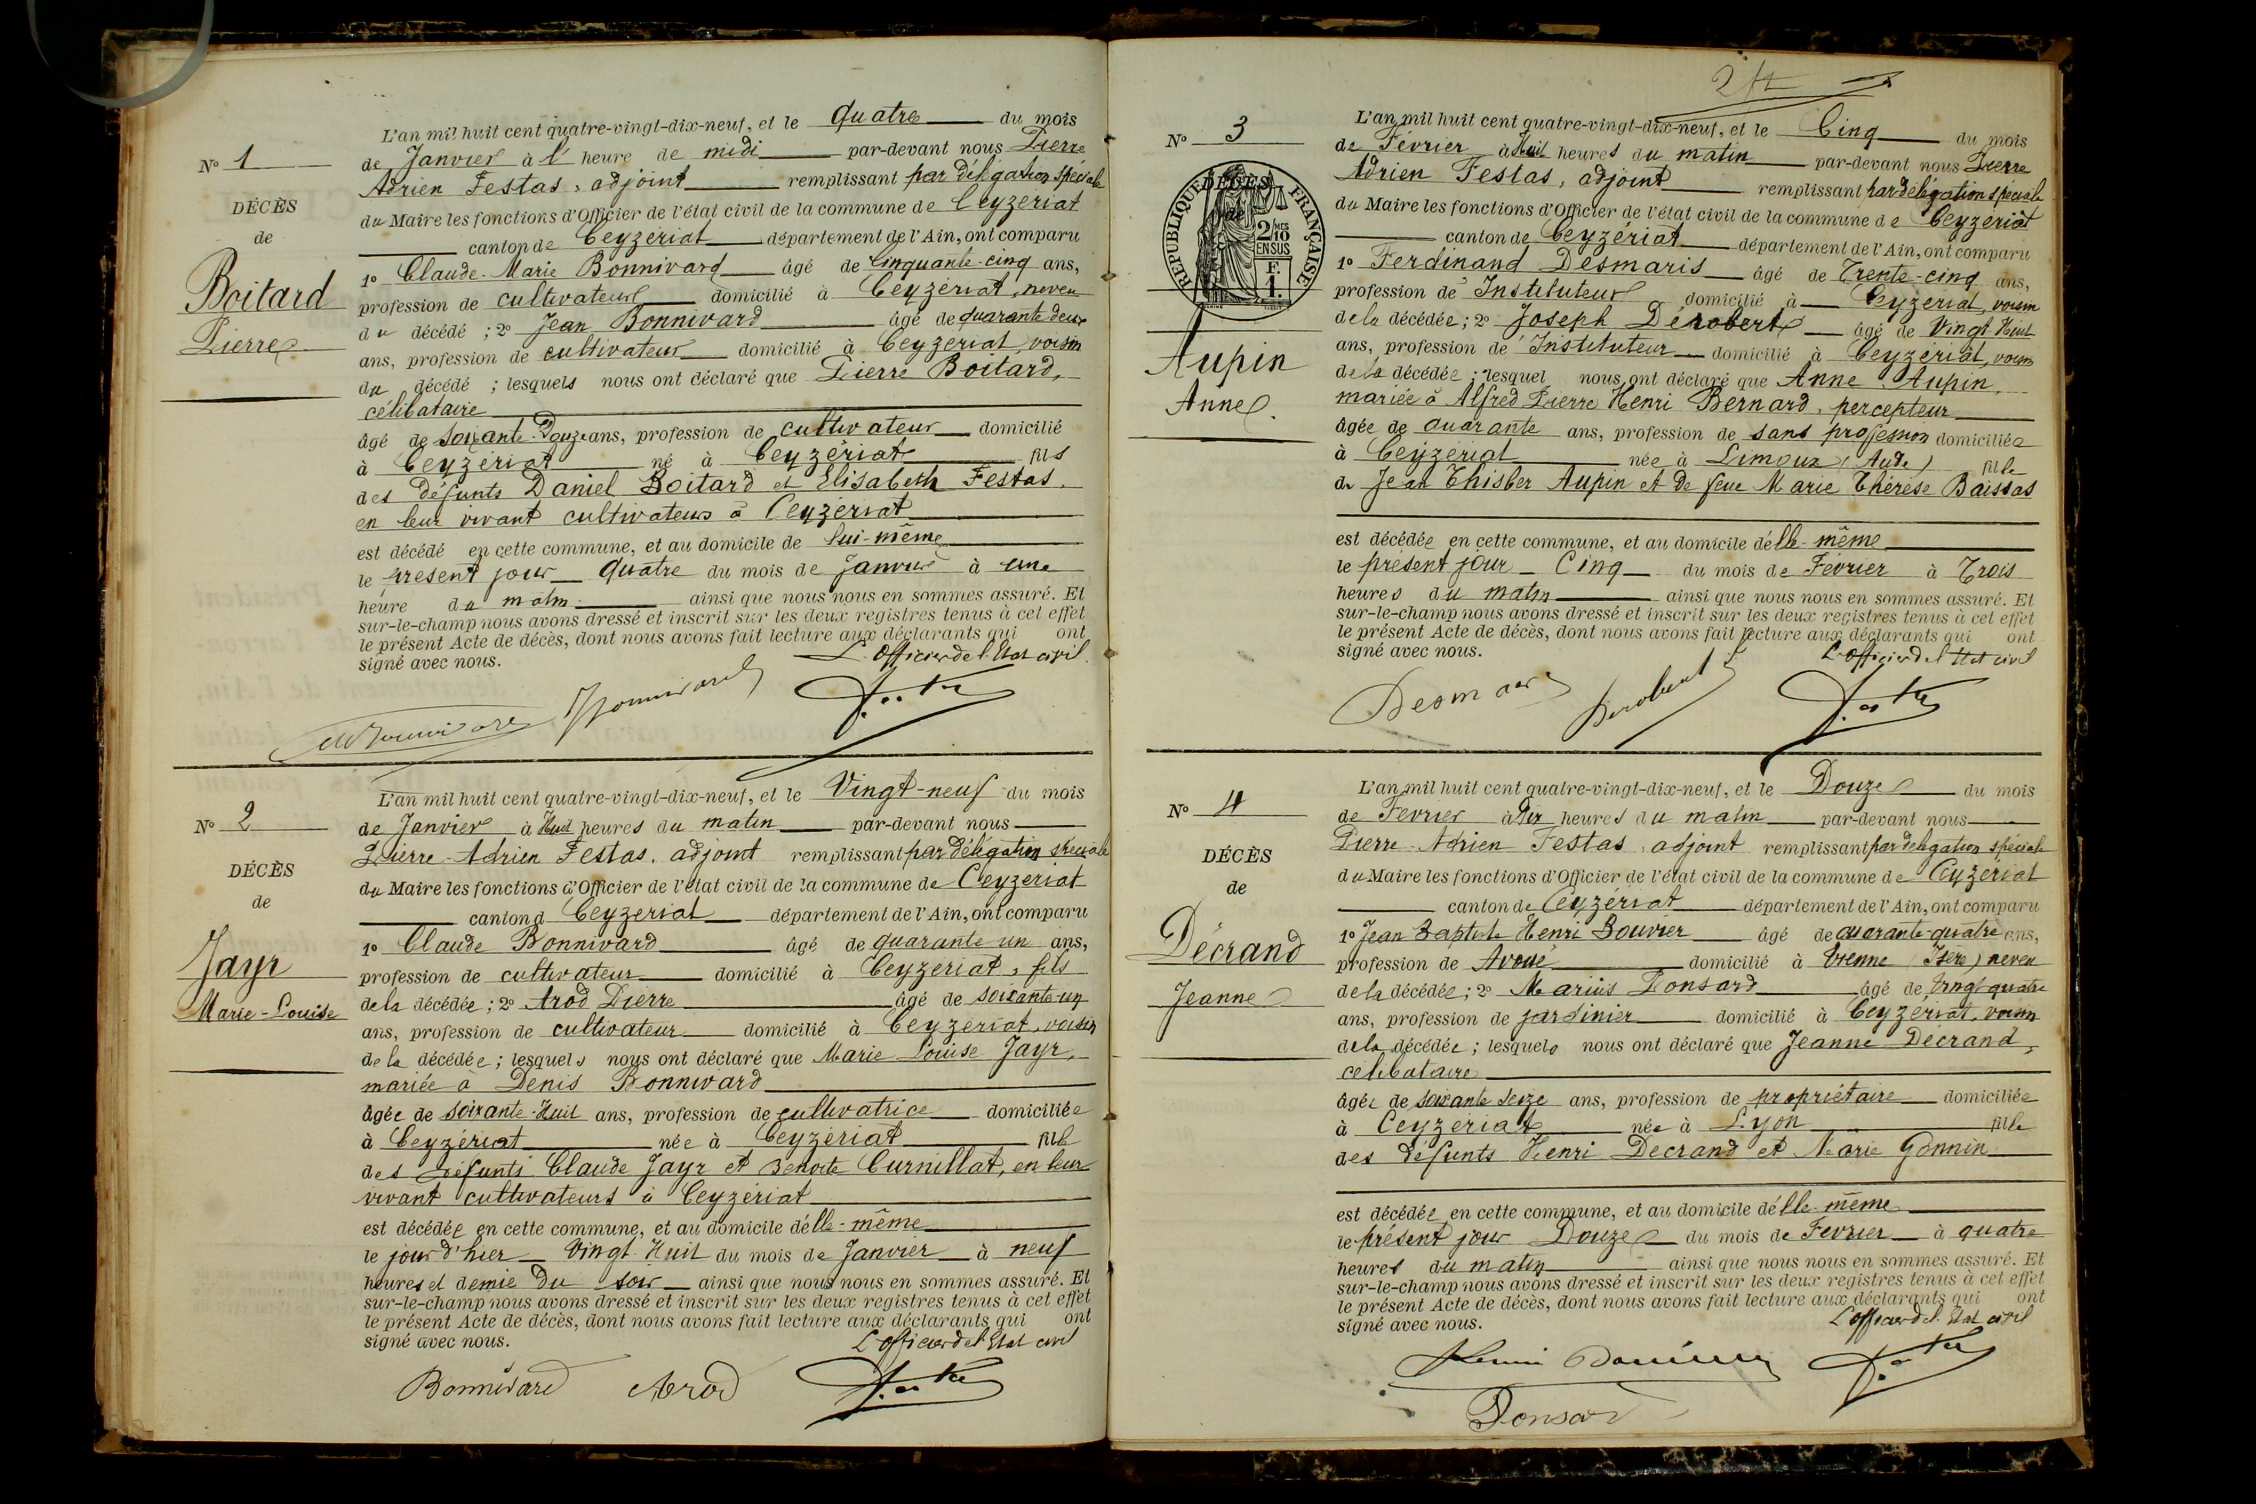 L'an mil huit cent quatre-vingt-dix-neuf, et le Quatre du mois
de Janvier à l' heure de midi par-devant nous Pierre
Adrien Festas, adjoint remplissant par délégation spéciale
du Maire les fonctions d'Officier de l'état civil de la commune de Ceyzériat
canton de Ceyzériat département de l'Ain, ont comparu
1º Claude-Marie Bonnivard âgé de Cinquante-cinq ans,
profession de cultivateur domicilié à Ceyzériat, neveu
du décédé ; 2º Jean Bonnivard âgé de quarante deux
ans, profession de cultivateur domicilié à Ceyzériat, voisin
du décédé ; lesquels nous ont déclaré que Pierre Boitard,
célibataire
âgé de soixante-Douze ans, profession de cultivateur domicilié
à Ceyzériat né à Ceyzériat fils
des défunts Daniel Boitard et Elisabeth Festas,
en leur vivant cultivateurs à Ceyzériat
est décédé en cette commune, et au domicile de lui-même
le présent jour Quatre du mois de Janvier à une
heure du matin ainsi que nous nous en sommes assuré. Et
sur-le-champ nous avons dressé et inscrit sur les deux registres tenus à cet effet
le présent Acte de décès, dont nous avons fait lecture aux déclarants qui ont
signé avec nous.
L'Officier de l'Etat civil
Nº 1
DÉCÈS
de
Boitard
Pierre
Bonnivard
Bonnivard
Festas
L'an mil huit cent quatre-vingt-dix-neuf, et le Vingt-neuf du mois
de Janvier à Huit heures du matin par-devant nous
Pierre-Adrien Festas, adjoint remplissant par délégation spéciale
du Maire les fonctions d'Officier de l'état civil de la commune de Ceyzériat
canton d Ceyzériat département de l'Ain, ont comparu
1º Claude Bonnivard âgé de quarante-un ans,
profession de cultivateur domicilié à Ceyzériat, fils
de la décédée ; 2º Arod Pierre âgé de soixante-un
ans, profession de cultivateur domicilié à Ceyzériat, voisin
de la décédée ; lesquels nous ont déclaré que Marie Louise Jayr,
mariée à Denis Bonnivard
âgée de soixante-Huit ans, profession de cultivatrice domiciliée
à Ceyzériat née à Ceyzériat fille
des défunts Claude Jayr et Benoite Curnillat, en leur
vivant cultivateurs à Ceyzériat
est décédée en cette commune, et au domicile d'elle-même
le jour d'hier Vingt-Huit du mois de Janvier à neuf
heures et demie du soir ainsi que nous nous en sommes assuré. Et
sur-le-champ nous avons dressé et inscrit sur les deux registres tenus à cet effet
le présent Acte de décès, dont nous avons fait lecture aux déclarants qui ont
signé avec nous.
L'officier de l'Etat civil
Nº 2
DÉCÈS
de
Jayr
Marie-Louise
Bonnivard
Arod
Festas
L'an mil huit cent quatre-vingt-dix-neuf, et le Cinq du mois
de Février à Huit heures du matin par-devant nous Pierre
Adrien Festas, adjoint remplissant par délégation spéciale
du Maire les fonctions d'Officier de l'état civil de la commune de Ceyzériat
canton de Ceyzériat département de l'Ain, ont comparu
1º Ferdinand Desmaris âgé de Trente-cinq ans,
profession de Instituteur domicilié à Ceyzériat, voisin
de la décédée ; 2º Joseph Dérobert âgé de Vingt-Huit
ans, profession de Instituteur domicilié à Ceyzériat, voisin
de la décédée ; lesquel nous ont déclaré que Anne Aupin,
mariée à Alfred Pierre Henri Bernard, percepteur
âgée de quarante ans, profession de sans profession domiciliée
à Ceyzériat née à Limoux (Aude) fille
de Jean Thisber Aupin et de feue Marie Thérèse Baissas
est décédée en cette commune, et au domicile d'elle-même
le présent jour Cinq du mois de Février à Trois
heures du matin ainsi que nous nous en sommes assuré. Et
sur-le-champ nous avons dressé et inscrit sur les deux registres tenus à cet effet
le présent Acte de décès, dont nous avons fait lecture aux déclarants qui ont
signé avec nous.
L'officier de l'Etat civil
Nº 3
RÉPUBLIQUE FRANÇAISE
2/10 EN SUS
F. 1.
DÉCÈS
de
Aupin
Anne
Desmaris
Derobert
Festas
L'an mil huit cent quatre-vingt-dix-neuf, et le Douze du mois
de Février à Dix heures du matin par-devant nous
Pierre-Adrien Festas, adjoint remplissant par délégation spéciale
du Maire les fonctions d'Officier de l'état civil de la commune de Ceyzériat
canton de Ceyzériat département de l'Ain, ont comparu
1º Jean Baptiste Henri Bouvier âgé de quarante-quatre ans,
profession de Avoué domicilié à Vienne (Isère) neveu
de la décédée ; 2º Marius Ponsard âgé de Vingt quatre
ans, profession de jardinier domicilié à Ceyzériat, voisin
de la décédée ; lesquels nous ont déclaré que Jeanne Décrand,
célibataire
âgée de soixante seize ans, profession de propriétaire domiciliée
à Ceyzériat née à Lyon fille
des défunts Henri Decrand et Marie Gonnin
est décédée en cette commune, et au domicile d'elle-même
le présent jour Douze du mois de Février à quatre
heures du matin ainsi que nous nous en sommes assuré. Et
sur-le-champ nous avons dressé et inscrit sur les deux registres tenus à cet effet
le présent Acte de décès, dont nous avons fait lecture aux déclarants qui ont
signé avec nous.
L'officier de l'Etat civil
Nº 4
DÉCÈS
de
Décrand
Jeanne
Henri Bouvier
Festas
Ponsard